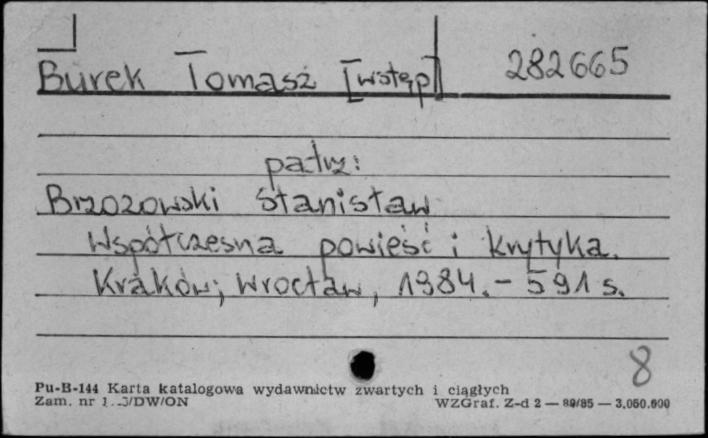 Burek Tomasz [wstęp] 282665
patrz:
Brzozowski Stanisław
Współczesna powieść i krytyka.
Kraków; Wrocław, 1984. - 591 s.
8
Pu-B-144 Karta katalogowa wydawnictw zwartych i ciągłych
Zam. nr /DW/ON WZGraf. Z-d 2 — 80/85 — 3.050.000